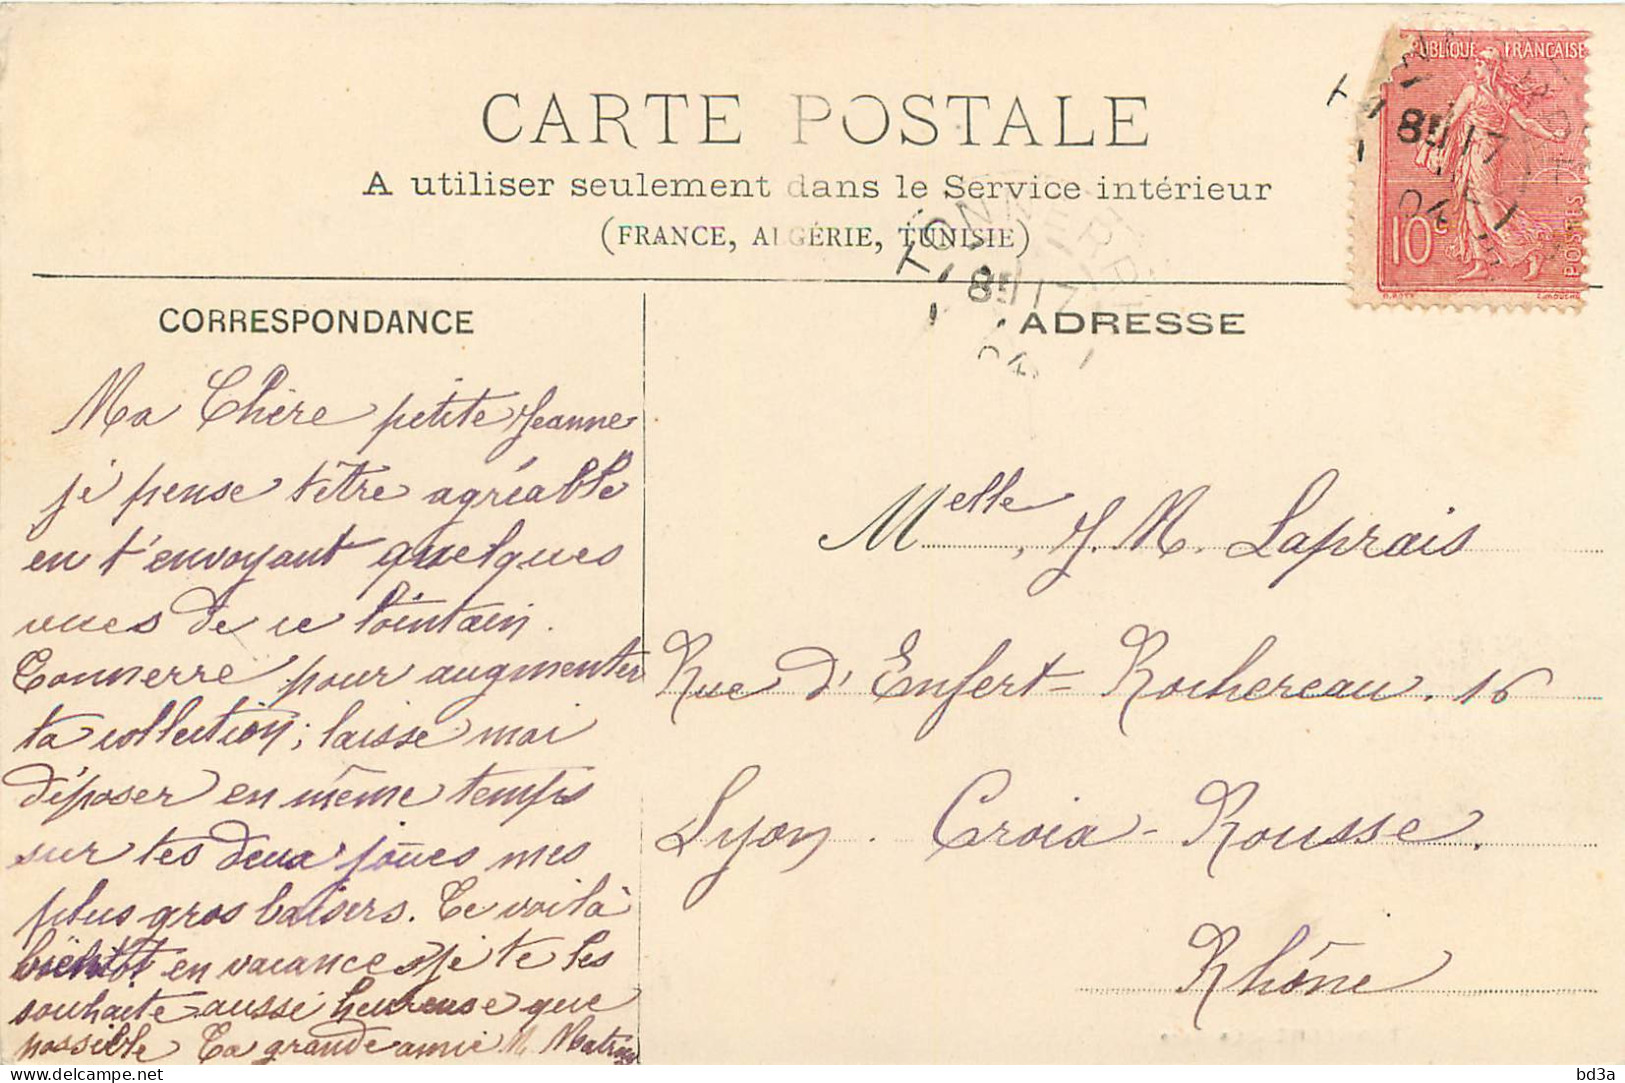 CARTE POSTALE
A utiliser seulement dans le Service intérieur
(FRANCE, ALGÉRIE, TUNISIE)
RÉPUBLIQUE FRANÇAISE
10c
POSTES
TONNERRE
85 17
04
CORRESPONDANCE
ADRESSE
Ma Chère petite Jeanne
je pense t'être agréable
en t'envoyant quelques
vues de ce lointain
Tonnerre pour augmenter
ta collection; laisse moi
déposer en même temps
sur tes deux joues mes
plus gros baisers. Te voilà
bientôt en vacances je te les
souhaite aussi heureuse que
possible Ta grande amie M.
Melle J. M. Laprais
Rue d'Enfert-Rochereau. 16
Lyon. Croix-Rousse.
Rhône
bd3a